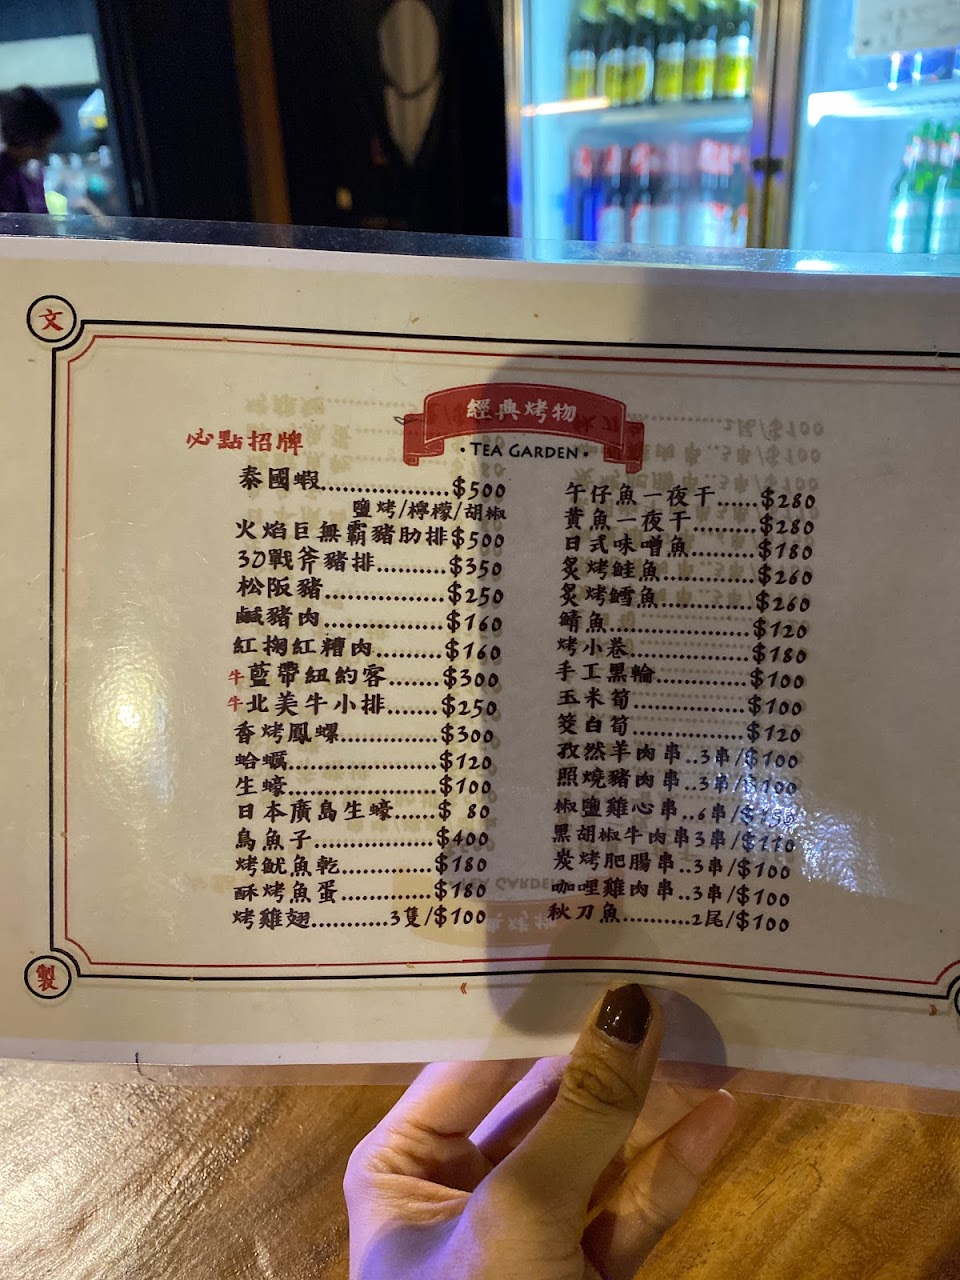 文
經典烤物
• TEA GARDEN •
必點招牌
泰國蝦..................$500
鹽烤/檸檬/胡椒
火焰巨無霸豬肋排$500
3D戰斧豬排..........$350
松阪豬.................$250
鹹豬肉.................$160
紅掬紅糟肉..........$160
牛藍帶紐約客.......$300
牛北美牛小排.......$250
香烤鳳螺..............$300
蛤蠣.....................$120
生蠔.....................$100
日本廣島生蠔......$ 80
烏魚子.................$400
烤魷魚乾.............$180
酥烤魚蛋.............$180
烤雞翅...........3隻/$100
午仔魚一夜干......$280
黄魚一夜干..........$280
日式味噌魚..........$180
炙烤鮭魚..............$260
炙烤鱈魚..............$260
鯖魚.....................$120
烤小卷.................$180
手工黑輪.............$100
玉米筍.................$100
筊白筍.................$120
孜然羊肉串..3串/$100
照燒豬肉串..3串/$100
椒鹽雞心串..6串/
黑胡椒牛肉串3串/$110
炭烤肥腸串..3串/$100
咖哩雞肉串..3串/$100
秋刀魚..........2尾/$100
製